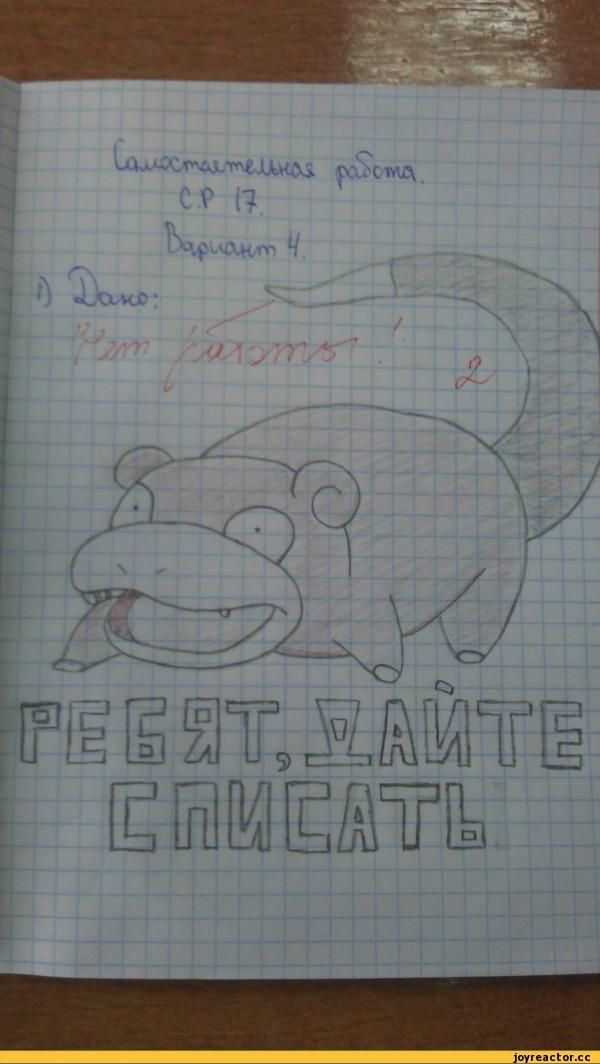 Самостоятельная работа.
С.Р 17.
Вариант 4.
1) Дано:
Нет работы!
2
РЕБЯТ, ДАЙТЕ
СПИСАТЬ
joyreactor.cc